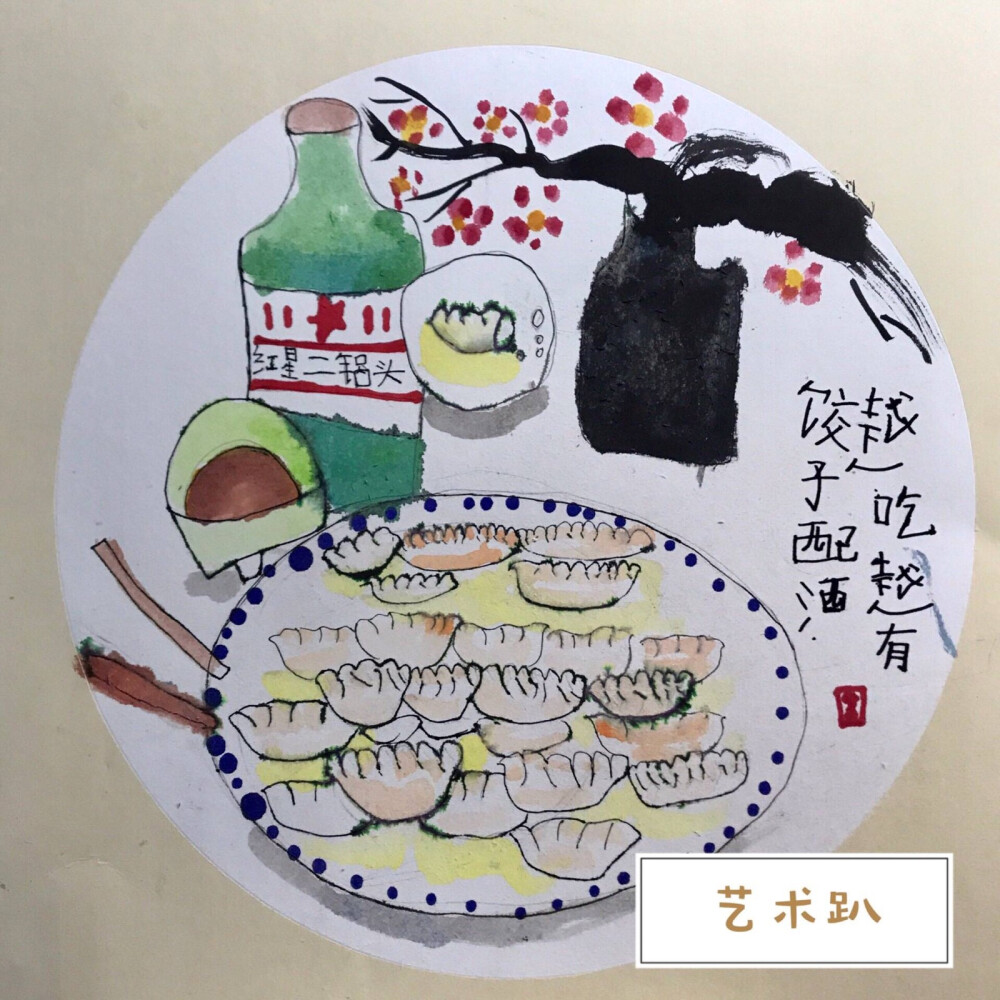 红星二锅头
饺子配酒
越吃越有
艺术趴